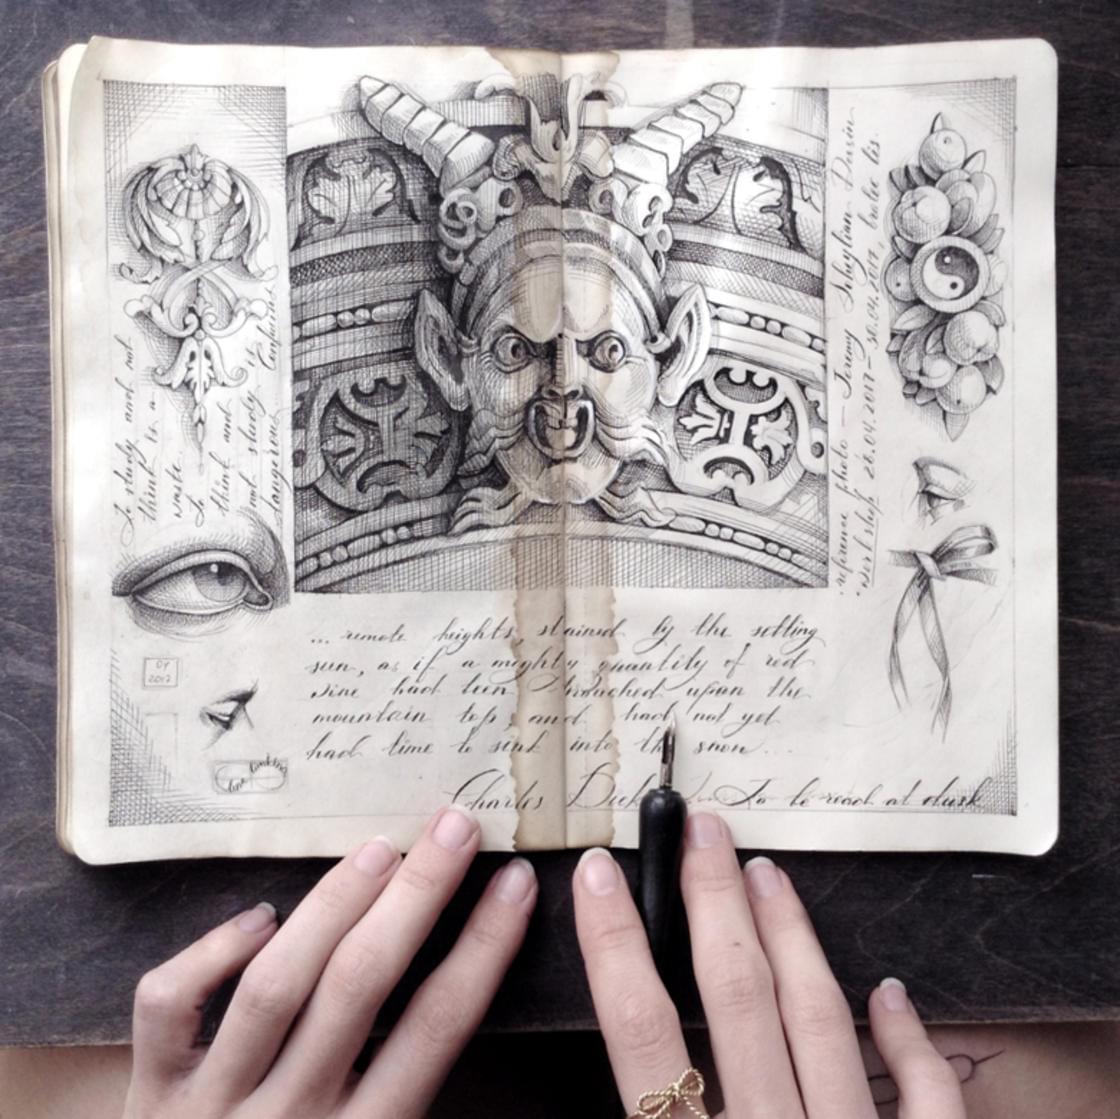 To study and not
think is a
waste.
To
think and
not study is
dangerous. Confucius
04
2017
line
... remote heights, stained by the setting
sun, as if a mighty quantity of red
wine had been broached upon the
mountain top, and had not yet
had time to sink into the snow...
Charles Dick To be read at dusk
reference photo — Jeremy Shyllian Perrin
workshop 28.04.2017 — 30.04.2017,